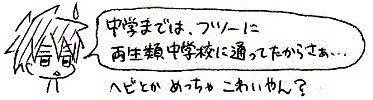 中学までは、フツーに
両生類中学校に通ってたからさぁ…
ヘビとか めっちゃ こわいやん？